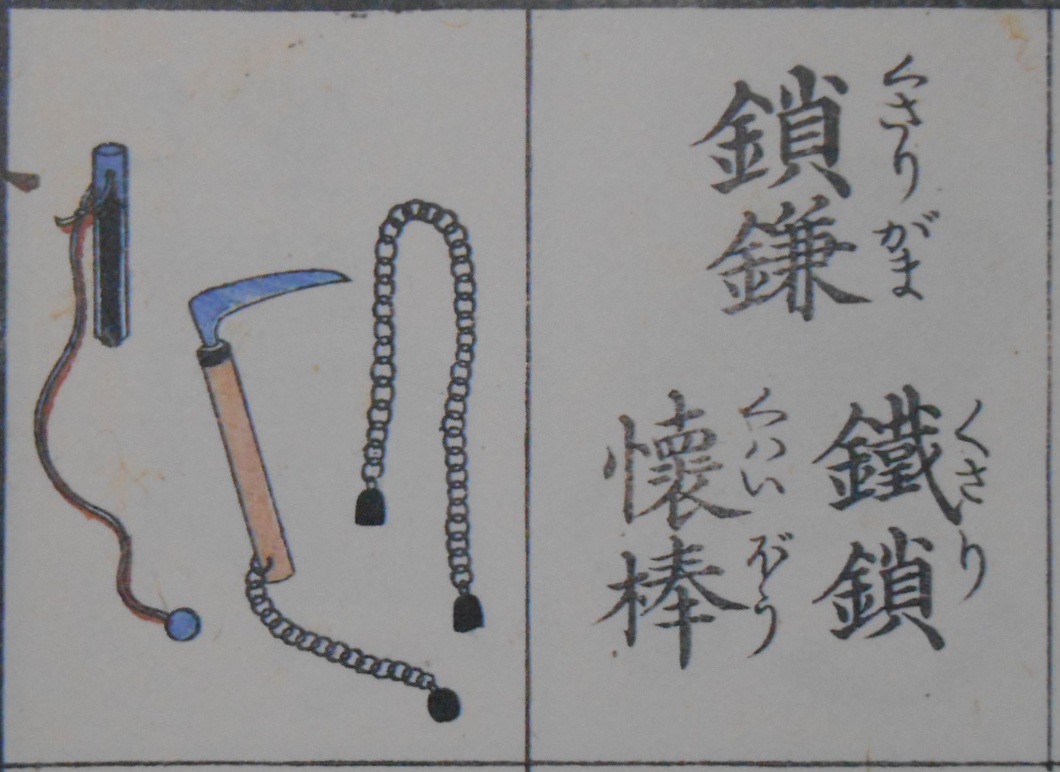 鎖鎌
くさりがま
鐵鎖
くさり
懷棒
くハいぼう